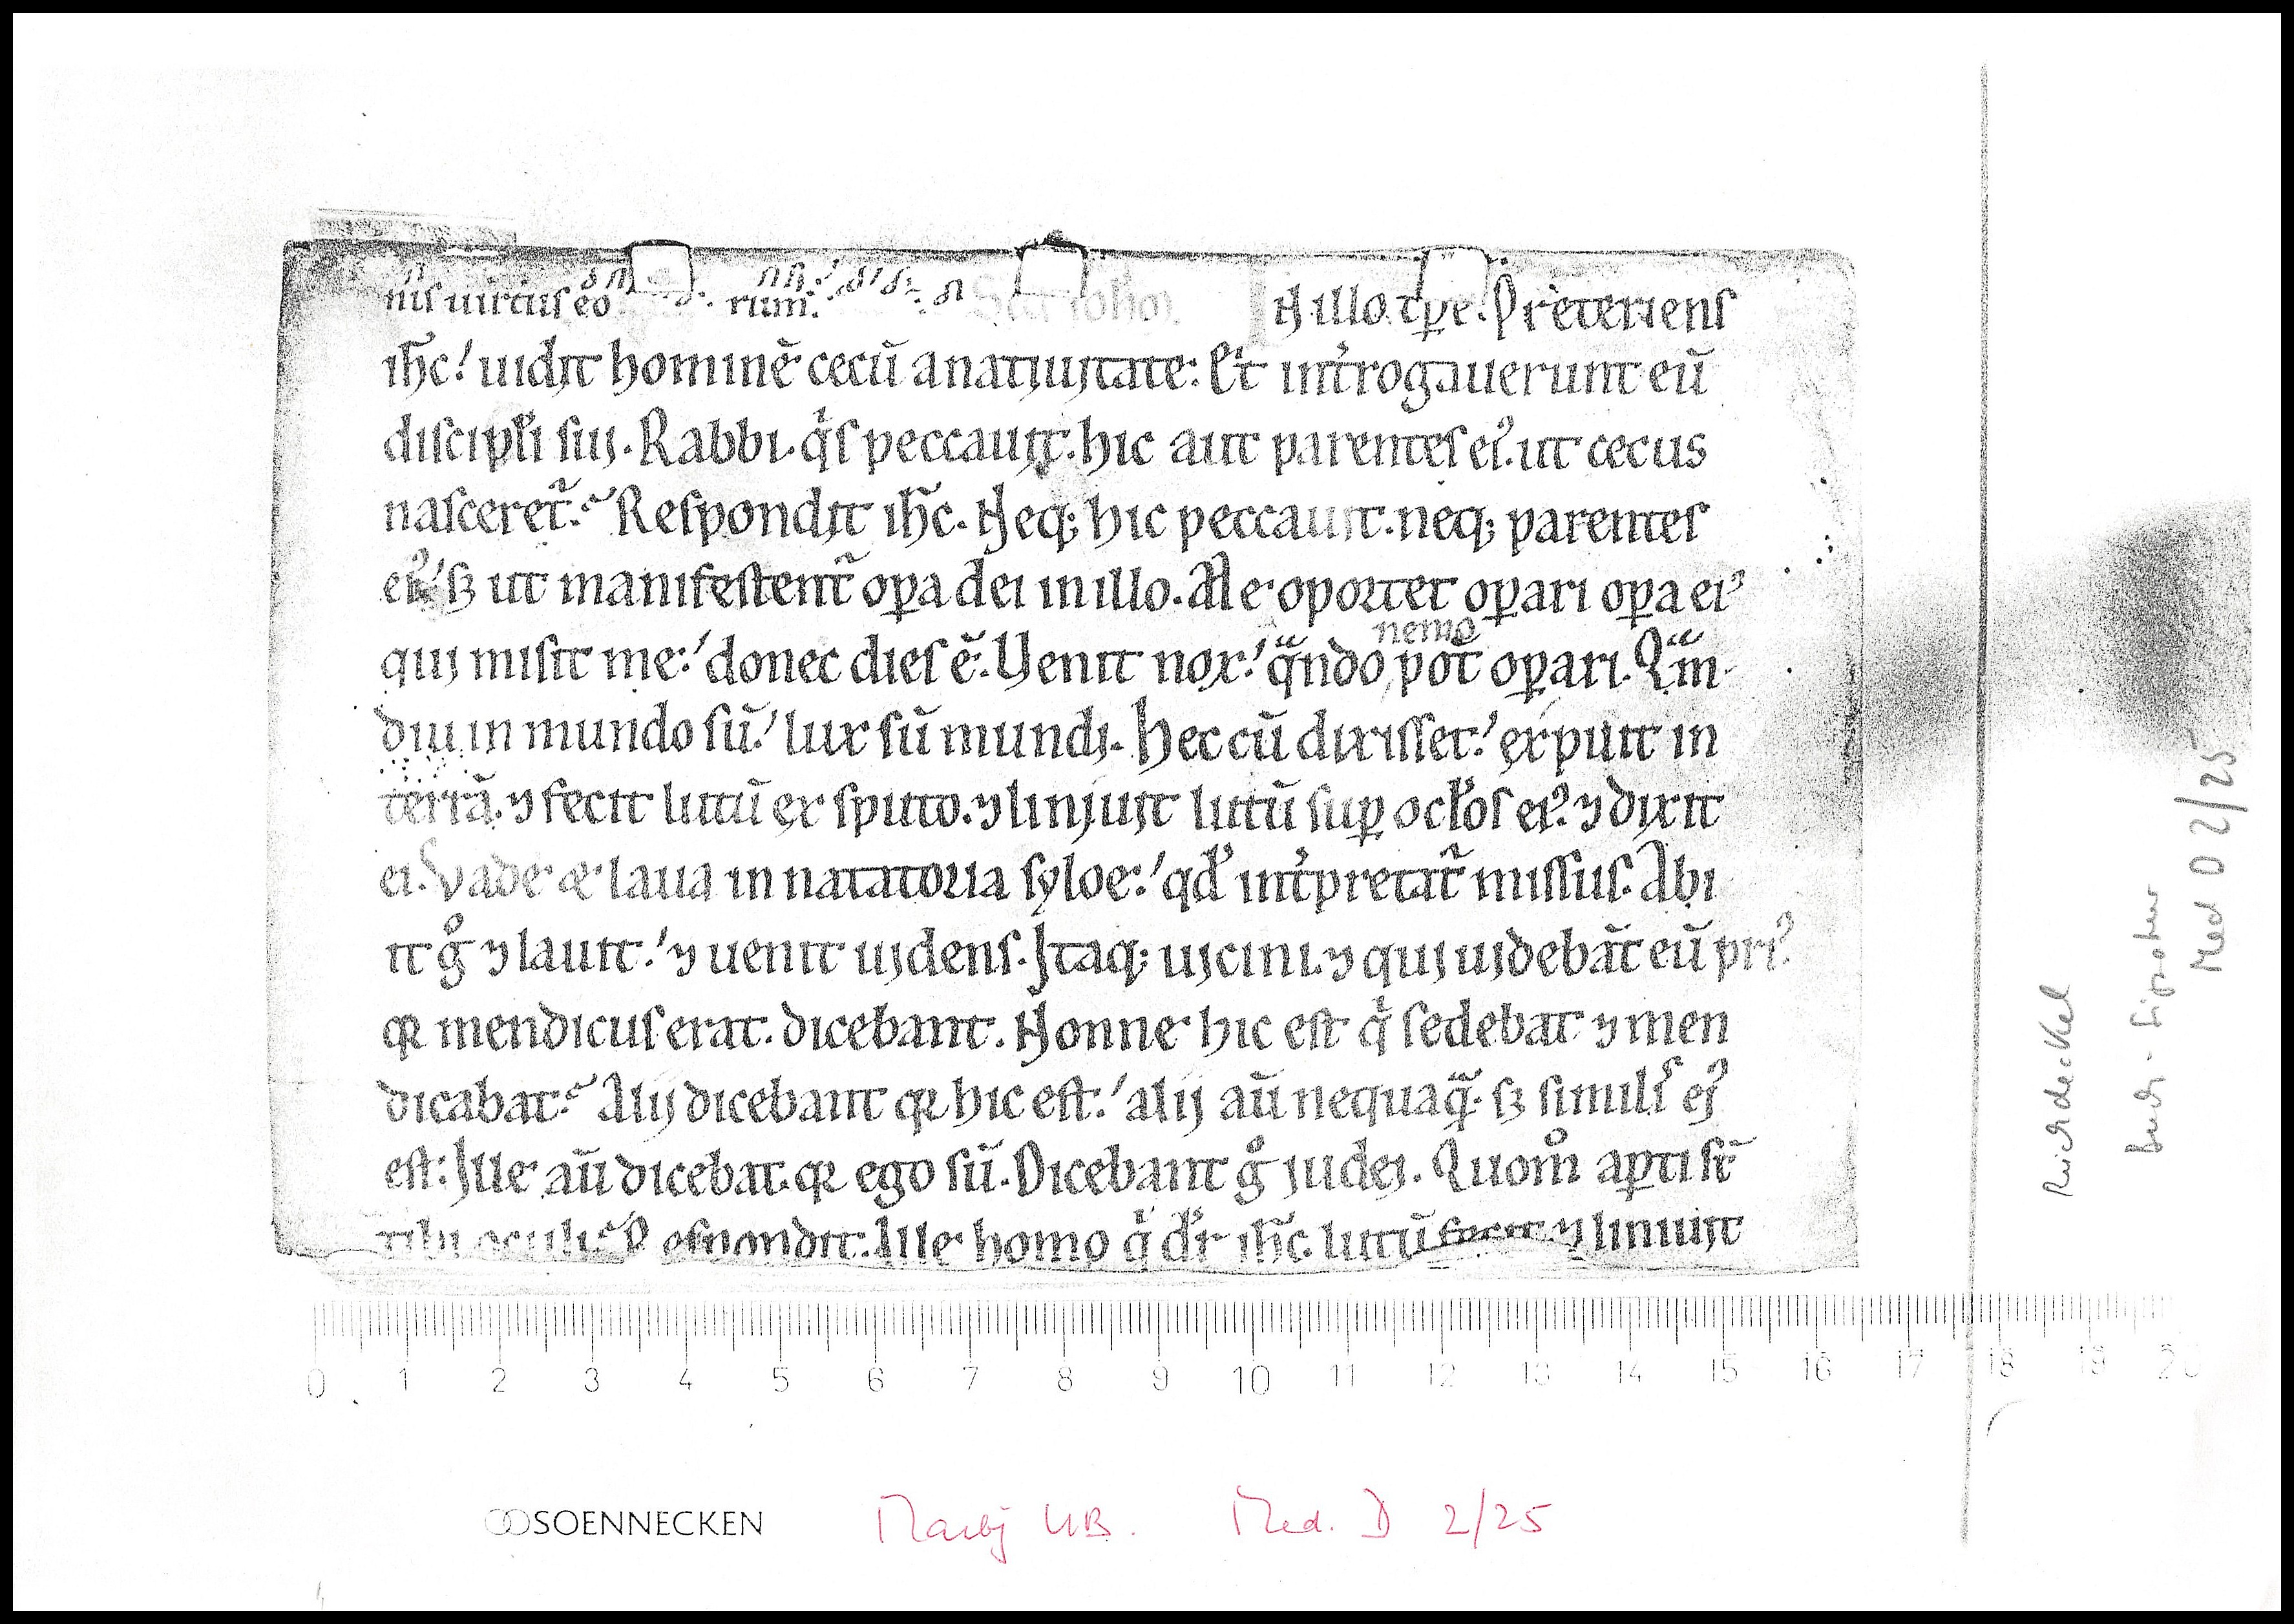 nis uirtus eo rum. Scd̄m ioh̄o. IN illo tp̱e. Preteriens
ih̄c: uidit hominē cecū a natiuitate: Et int̓rogauerunt eū
discipl̓i sui. Rabbi. qͥs peccauit. hic aut parentes eiꝰ. ut cecus
nasceret᷑. Respondit ih̄c. Neq; hic peccauit. neq; parentes
eiꝰ. sꝫ ut manifestent᷑ oꝑa dei in illo. Me oportet oꝑari oꝑa eiꝰ
qui misit me: donec dies ē. Venit nox: qͣndo
nemo
pot̄ oꝑari. Qͣm
diu in mundo sū: lux sū mundi. Hec cū dixisset: expuit in
terrā. ⁊ fecit lutū ex sputo. ⁊ liniuit lutū suꝑ ocl̓os eiꝰ. ⁊ dixit
ei. Vade et laua in natatoria syloe: qd̓ int̓pretat᷑ missus. Abi
it gͦ ⁊ lauit: ⁊ uenit uidens. Itaq; uicini. ⁊ qui uidebāt eū priꝰ
qꝛ mendicus erat. dicebant. Nonne hic est qͥ sedebat ⁊ men
dicabat. Alij dicebant qꝛ hic est: alij aū nequaqͣ. sꝫ simil̓ eiꝰ
est: Ille aū dicebat. qꝛ ego sū. Dicebant gͦ iudei. Quom̊ aꝑti st̄
tibi oculi. Respondit. Ille homo qͥ dr̄ ih̄c. lutū fecit ⁊ liniuit
0 1 2 3 4 5 6 7 8 9 10 11 12 13 14 15 16 17 18 19 20
SOENNECKEN
Marbg UB. Med. D 2/25
Rückdeckel
Med D 2/25